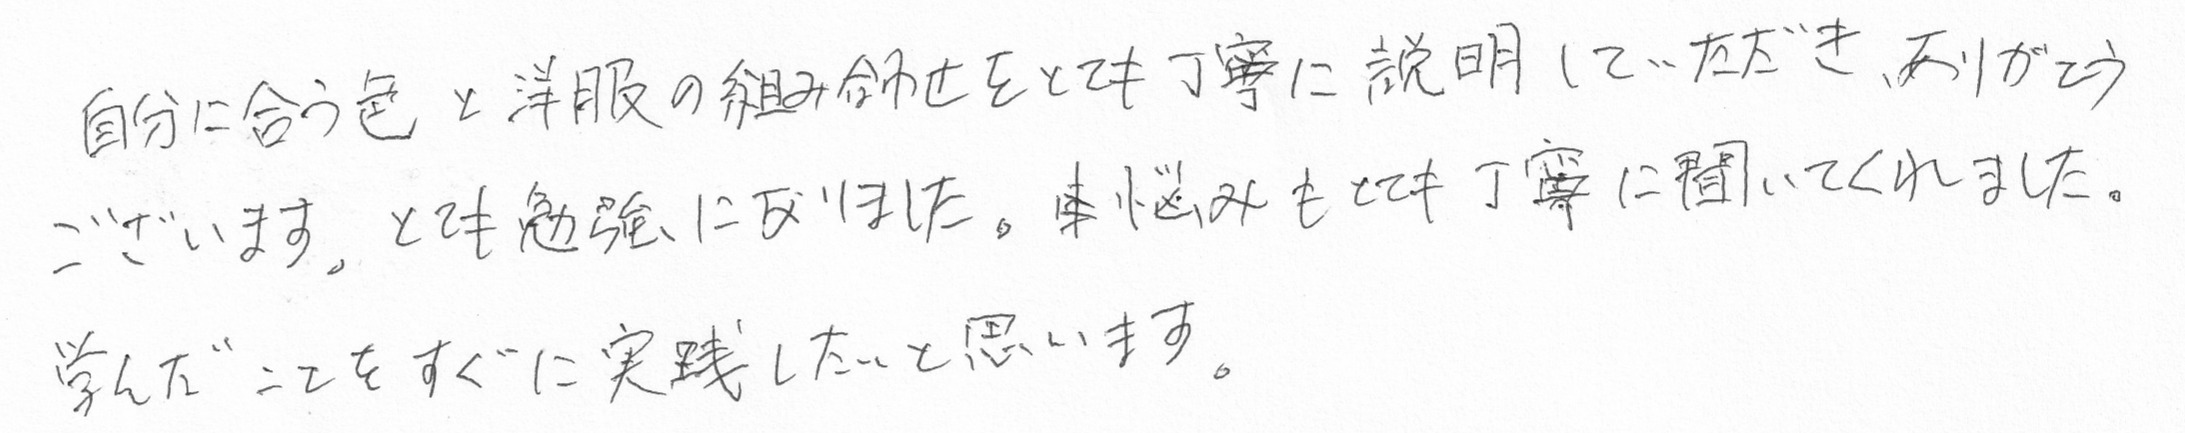 自分に合う色と洋服の組み合わせをとても丁寧に説明していただき、ありがとう
ございます。とても勉強になりました。悩みもとても丁寧に聞いてくれました。
学んだことをすぐに実践したいと思います。